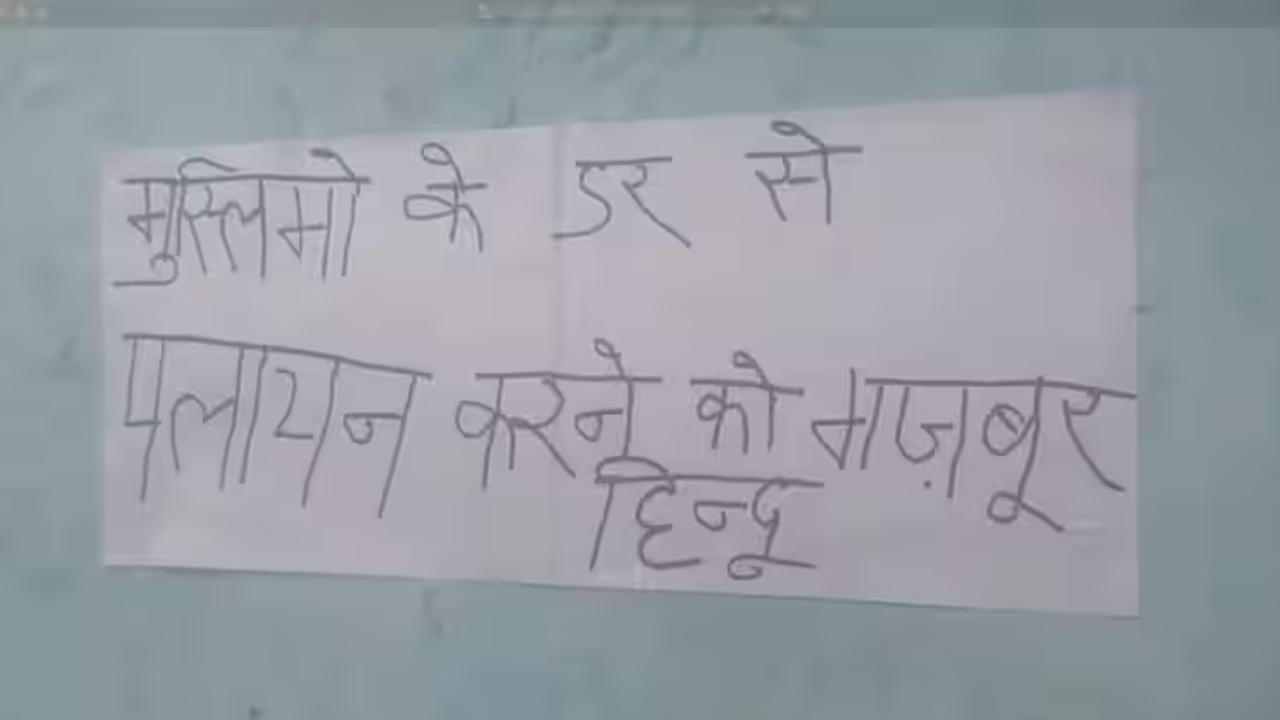 मुस्लिमो के डर से
पलायन करने को मज़बूर
हिन्दू